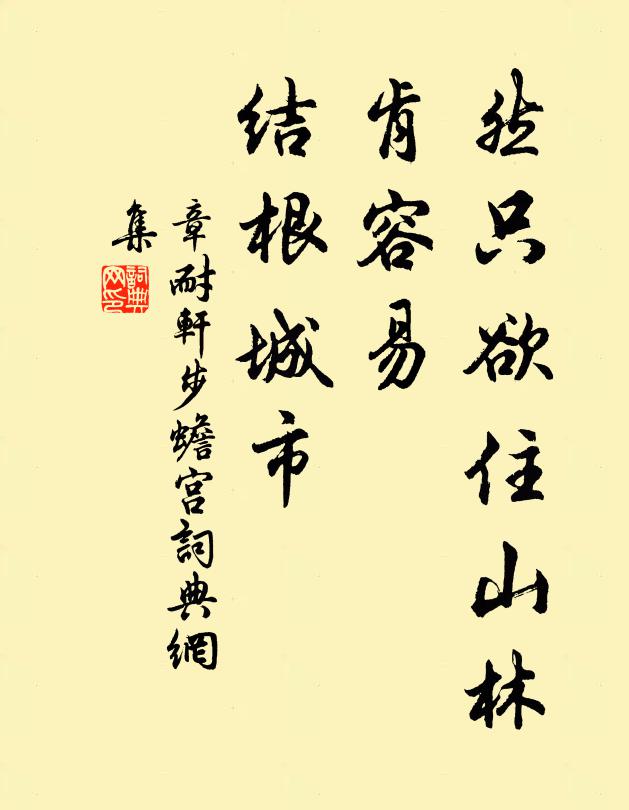 然只欲住山林
肯容易
结根城市
章耐軒步蟾宫詞典網
集
詞典網印